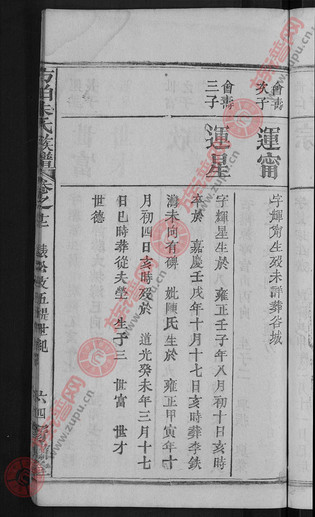 會壽
次子
運甯
字輝甯生歿未詳葬谷城
會壽
三子
運星
字輝星生於 雍正壬子年八月初十日亥時
卒於 嘉慶壬戌年十月十七日亥時葬李鉄
灣未向有碑 妣陳氏生於 雍正甲寅年十
月初四日亥時歿於 道光癸未年三月十七
日巳時葬從夫塋 生子三 世富 世才
世德
朱氏族譜 卷之十二
五提世紀
六四
族譜网
www.zupu.cn